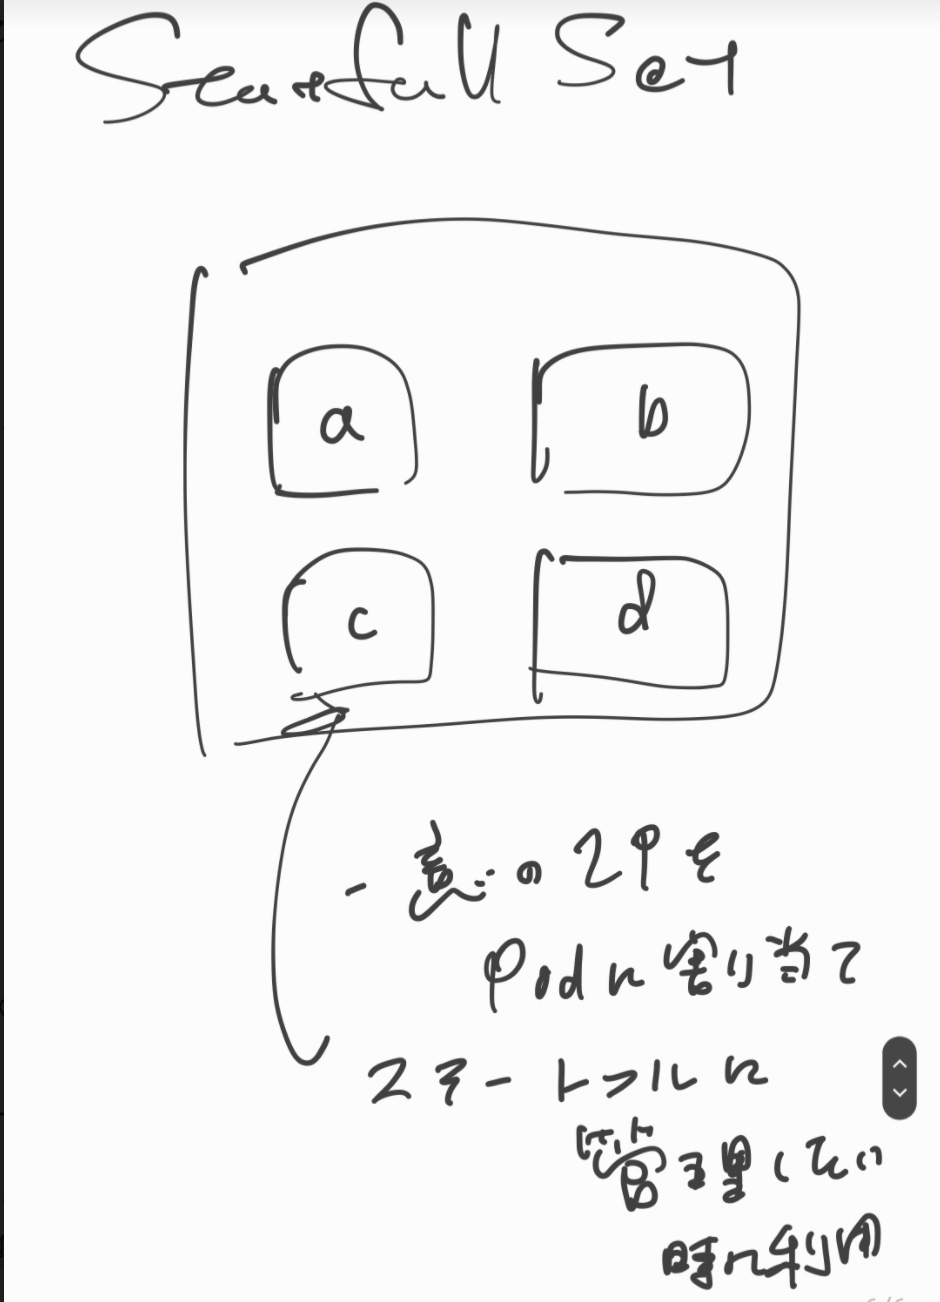 Statefull Set
a
b
c
d
一意の IPを
Podに割り当て
ステートフルに
管理したい
時に利用